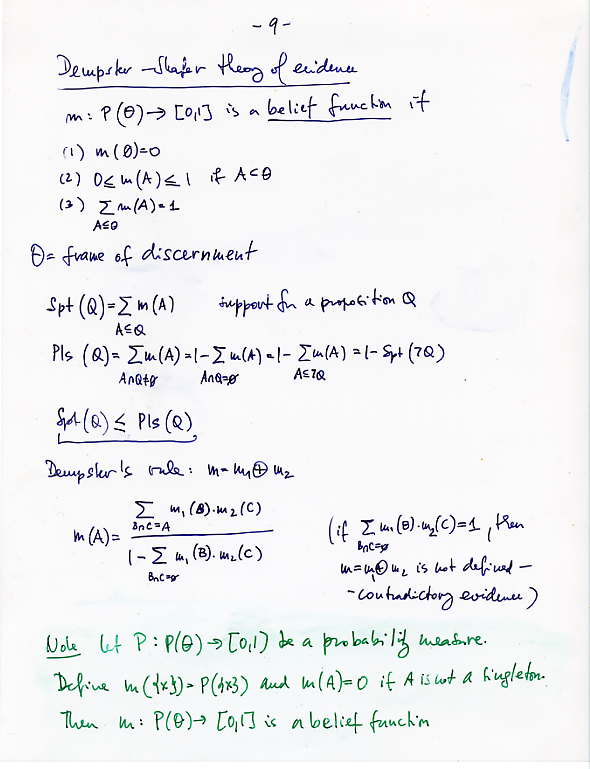 - 9 -
Dempster - Shafer theory of evidence
m: P(Θ) → [0,1] is a belief function if
(1) m(∅)=0
(2) 0≤m(A)≤1 if A⊂Θ
(3) ∑ m(A)=1
A⊆Θ
Θ= frame of discernment
Spt(Q)=∑ m(A) support for a proposition Q
A⊆Q
Pls (Q)= ∑m(A)=1-∑m(A)=1- ∑m(A) =1- Spt(¬Q)
A∩Q≠∅ A∩Q=∅ A⊆¬Q
Spt(Q) ≤ Pls(Q)
Dempster's rule: m=m₁⊕m₂
∑ m₁(B).m₂(C)
B∩C=A
m(A)=
1-∑ m₁(B).m₂(C)
B∩C=∅
(if ∑ m₁(B).m₂(C)=1, then
B∩C=∅
m=m₁⊕m₂ is not defined -
- contradictory evidence)
Note let P: P(Θ) → [0,1] be a probability measure.
Define m({x})=P({x}) and m(A)=0 if A is not a singleton.
Then m: P(Θ)→ [0,1] is a belief function